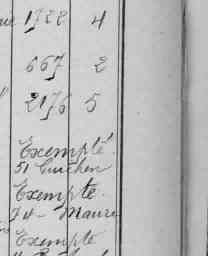 1722 4
667 2
2176 5
Exempté
51 Guichen
Exempte
Maure
Exempte